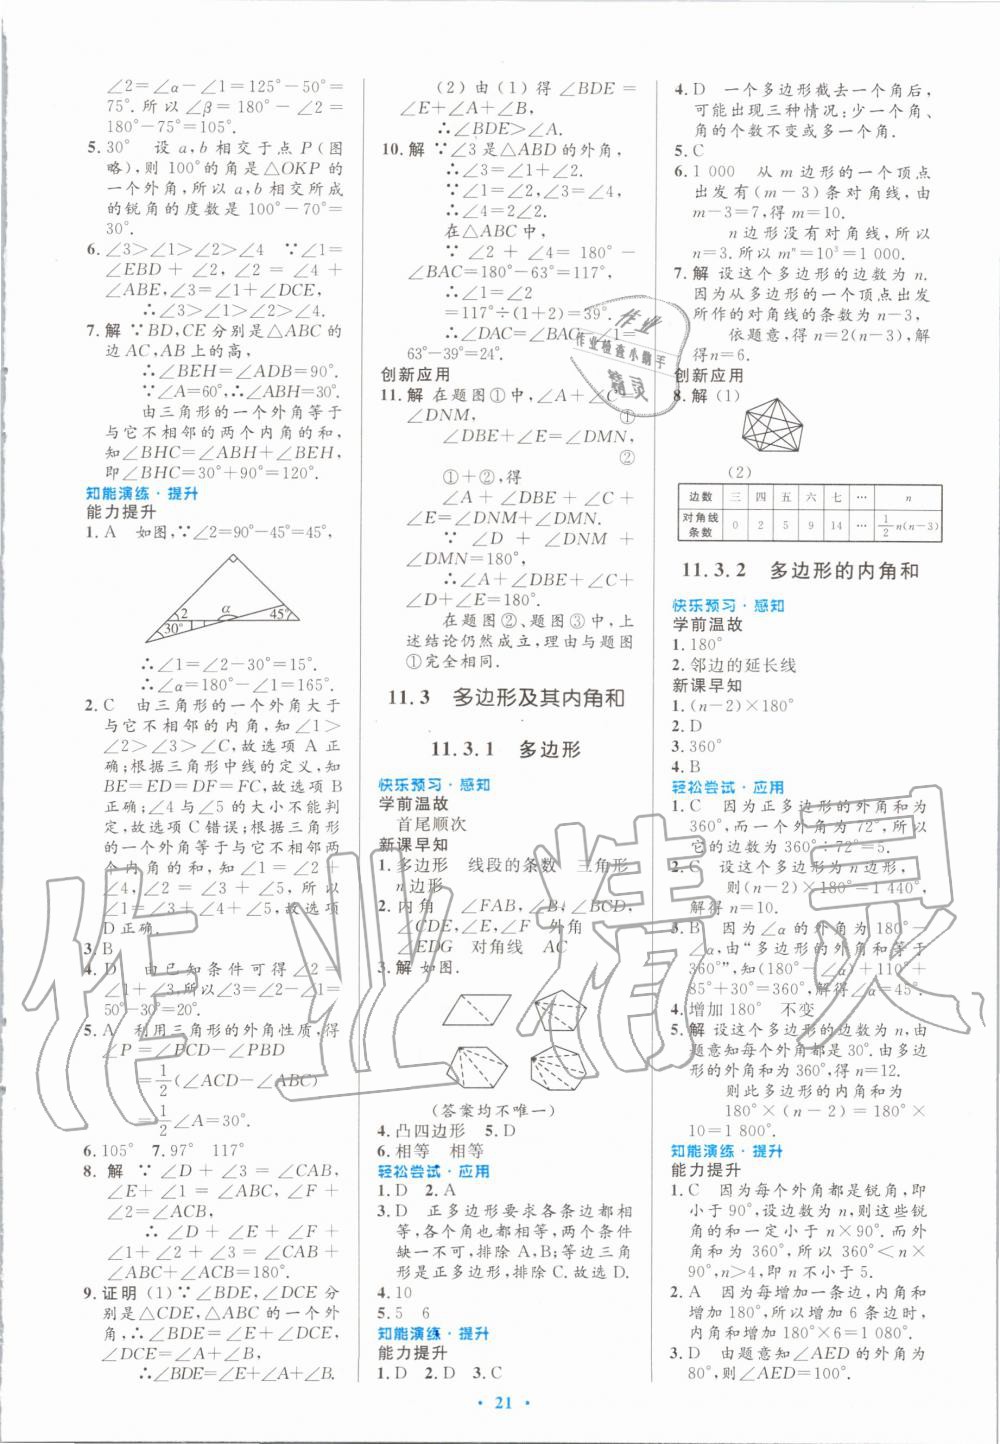 ∠2=∠α-∠1=125°-50°=
75°. 所以∠β=180°-∠2=
180°-75°=105°.
5. 30° 设 a,b 相交于点 P(图
略),则100°的角是△OKP的
一个外角,所以 a,b 相交所成
的锐角的度数是100°-70°=
30°.
6. ∠3>∠1>∠2>∠4 ∵∠1=
∠EBD+∠2,∠2=∠4+
∠ABE,∠3=∠1+∠DCE,
∴∠3>∠1>∠2>∠4.
7. 解 ∵BD,CE 分别是△ABC 的
边 AC,AB 上的高,
∴∠BEH=∠ADB=90°.
∵∠A=60°,∴∠ABH=30°.
由三角形的一个外角等于
与它不相邻的两个内角的和,
知∠BHC=∠ABH+∠BEH,
即∠BHC=30°+90°=120°.
知能演练·提升
能力提升
1. A 如图,∵∠2=90°-45°=45°,
2 α 45° 30° 1
∴∠1=∠2-30°=15°.
∴∠α=180°-∠1=165°.
2. C 由三角形的一个外角大于
与它不相邻的内角,知∠1>
∠2>∠3>∠C,故选项 A 正
确;根据三角形中线的定义,知
BE=ED=DF=FC,故选项 B
正确;∠4与∠5的大小不能判
定,故选项 C 错误;根据三角形
的一个外角等于与它不相邻两
个内角的和,知∠1=∠2+
∠4,∠2=∠3+∠5,所以
∠1=∠3+∠4+∠5,故选项
D 正确.
3. B
4. D 由已知条件可得∠2=
∠1+∠3,所以∠3=∠2-∠1=
50°-30°=20°.
5. A 利用三角形的外角性质,得
∠P=∠PCD-∠PBD
=1/2(∠ACD-∠ABC)
=1/2∠A=30°.
6. 105° 7. 97° 117°
8. 解 ∵∠D+∠3=∠CAB,
∠E+∠1=∠ABC,∠F+
∠2=∠ACB,
∴∠D+∠E+∠F+
∠1+∠2+∠3=∠CAB+
∠ABC+∠ACB=180°.
9. 证明 (1)∵∠BDE,∠DCE 分
别是△CDE,△ABC 的一个外
角,∴∠BDE=∠E+∠DCE,
∠DCE=∠A+∠B.
∴∠BDE=∠E+∠A+∠B.
(2)由(1)得∠BDE=
∠E+∠A+∠B,
∴∠BDE>∠A.
10. 解 ∵∠3是△ABD的外角,
∴∠3=∠1+∠2.
∵∠1=∠2,∠3=∠4,
∴∠4=2∠2.
在△ABC中,
∵∠2+∠4=180°-
∠BAC=180°-63°=117°,
∴∠1=∠2
=117°÷(1+2)=39°.
∴∠DAC=∠BAC-∠1=
63°-39°=24°.
创新应用
11. 解 在题图①中,∠A+∠C=
∠DNM, ①
∠DBE+∠E=∠DMN,
②
①+②,得
∠A+∠DBE+∠C+
∠E=∠DNM+∠DMN.
∵∠D+∠DNM+
∠DMN=180°,
∴∠A+∠DBE+∠C+
∠D+∠E=180°.
在题图②、题图③中,上
述结论仍然成立,理由与题图
①完全相同.
11.3 多边形及其内角和
11.3.1 多边形
快乐预习·感知
学前温故
首尾顺次
新课早知
1. 多边形 线段的条数 三角形
n边形
2. 内角 ∠FAB,∠B,∠BCD,
∠CDE,∠E,∠F 外角
∠EDG 对角线 AC
3. 解 如图.
(答案均不唯一)
4. 凸四边形 5. D
6. 相等 相等
轻松尝试·应用
1. D 2. A
3. D 正多边形要求各条边都相
等,各个角也都相等,两个条件
缺一不可,排除 A,B;等边三角
形是正多边形,排除 C.故选 D.
4. 10
5. 5 6
知能演练·提升
能力提升
1. D 2. D 3. C
4. D 一个多边形截去一个角后,
可能出现三种情况:少一个角、
角的个数不变或多一个角.
5. C
6. 1 000 从 m 边形的一个顶点
出发有(m-3)条对角线,由
m-3=7,得 m=10.
n边形没有对角线,所以
n=3.所以 mⁿ=10³=1 000.
7. 解 设这个多边形的边数为 n.
因为从多边形的一个顶点出发
所作的对角线的条数为 n-3,
依题意,得 n=2(n-3),解
得 n=6.
创新应用
8. 解 (1)
(2)
边数 三 四 五 六 七 … n
对角线条数 0 2 5 9 14 … 1/2 n(n-3)
11.3.2 多边形的内角和
快乐预习·感知
学前温故
1. 180°
2. 邻边的延长线
新课早知
1. (n-2)×180°
2. D
3. 360°
4. B
轻松尝试·应用
1. C 因为正多边形的外角和为
360°,而一个外角为72°,所以
它的边数为360°÷72°=5.
2. C 设这个多边形为 n 边形,
则(n-2)×180°=1 440°,
解得 n=10.
3. B 因为∠α的外角为180°-
∠α,由“多边形的外角和等于
360°”,知(180°-∠α)+110°+
85°+30°=360°,解得∠α=45°.
4. 增加180° 不变
5. 解 设这个多边形的边数为 n,由
题意知每个外角都是30°.由多边
形的外角和为360°,得 n=12.
则此多边形的内角和为
180°×(n-2)=180°×
10=1 800°.
知能演练·提升
能力提升
1. C 因为每个外角都是锐角,即
小于90°,设边数为 n,则这些锐
角的和一定小于 n×90°.而外
角和为360°,所以360°<n×
90°,n>4,即 n 至少是5.
2. A 因为每增加一边,内角和
增加180°,所以增加6条边时,
内角和增加180°×6=1 080°.
3. D 由题意知∠AED的外角为
80°,则∠AED=100°.
· 21 ·
作业
作业检查小助手
精灵
作业精灵